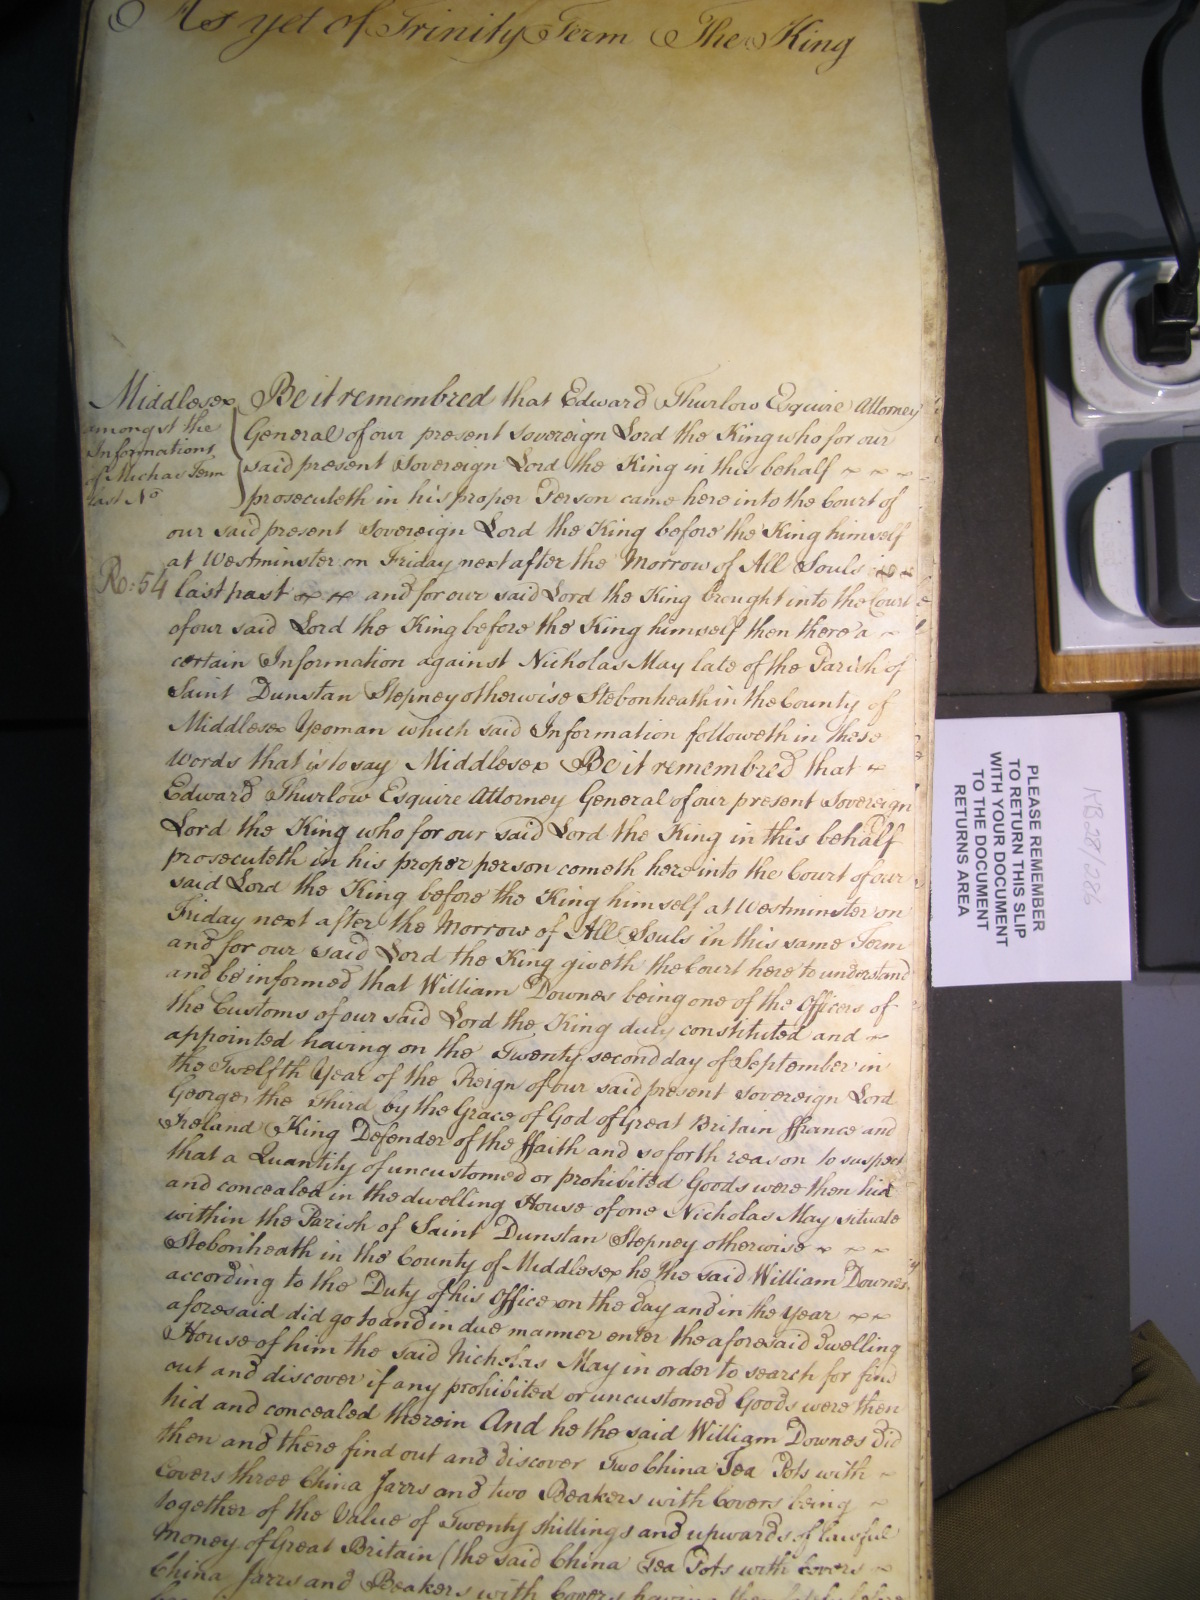 As yet of Trinity Term The King
Middlesex Be it remembred that Edward Thurlow Esquire Attorney
amongst the
Informations
of Michas Term
last No
General of our present Sovereign Lord the King who for our
said present Sovereign Lord the King in this behalf
prosecuteth in his proper Person came here into the Court of
our said present Sovereign Lord the King before the King himself
at Westminster on Friday next after the Morrow of All Souls
Ro: 54
last past and for our said Lord the King brought into the Court
of our said Lord the King before the King himself then there a
certain Information against Nicholas May late of the Parish of
Saint Dunstan Stepney otherwise Stebonheath in the County of
Middlesex Yeoman which said Information followeth in these
words that is to say Middlesex Be it remembred that
Edward Thurlow Esquire Attorney General of our present Sovereign
Lord the King who for our said Lord the King in this behalf
prosecuteth in his proper person cometh here into the Court of our
said Lord the King before the King himself at Westminster on
Friday next after the Morrow of All Souls in this same Term
and for our said Lord the King giveth the Court here to understand
and be informed that William Downes being one of the Officers of
the Customs of our said Lord the King duly constituted and
appointed having on the Twenty second day of September in
the Twelfth Year of the Reign of our said present Sovereign Lord
George the third by the Grace of God of Great Britain ffrance and
Ireland King Defender of the ffaith and so forth reason to suspect
that a Quantity of uncustomed or prohibited Goods were then hid
and concealed in the dwelling House of one Nicholas May situate
within the Parish of Saint Dunstan Stepney otherwise
Stebonheath in the County of Middlesex he the said William Downes
according to the Duty of his Office on the day and in the Year
aforesaid did go to and in due manner enter the aforesaid dwelling
House of him the said Nicholas May in order to search for find
out and discover if any prohibited or uncustomed Goods were then
hid and concealed therein And he the said William Downes did
then and there find out and discover Two China Tea Pots with
Covers three China Jarrs and two Beakers with Covers being
together of the Value of Twenty shillings and upwards of lawful
money of Great Britain (the said China Tea Pots with Covers
China Jarrs and Beakers with Covers having then
PLEASE REMEMBER
TO RETURN THIS SLIP
WITH YOUR DOCUMENT
TO THE DOCUMENT
RETURNS AREA
KB 28/286